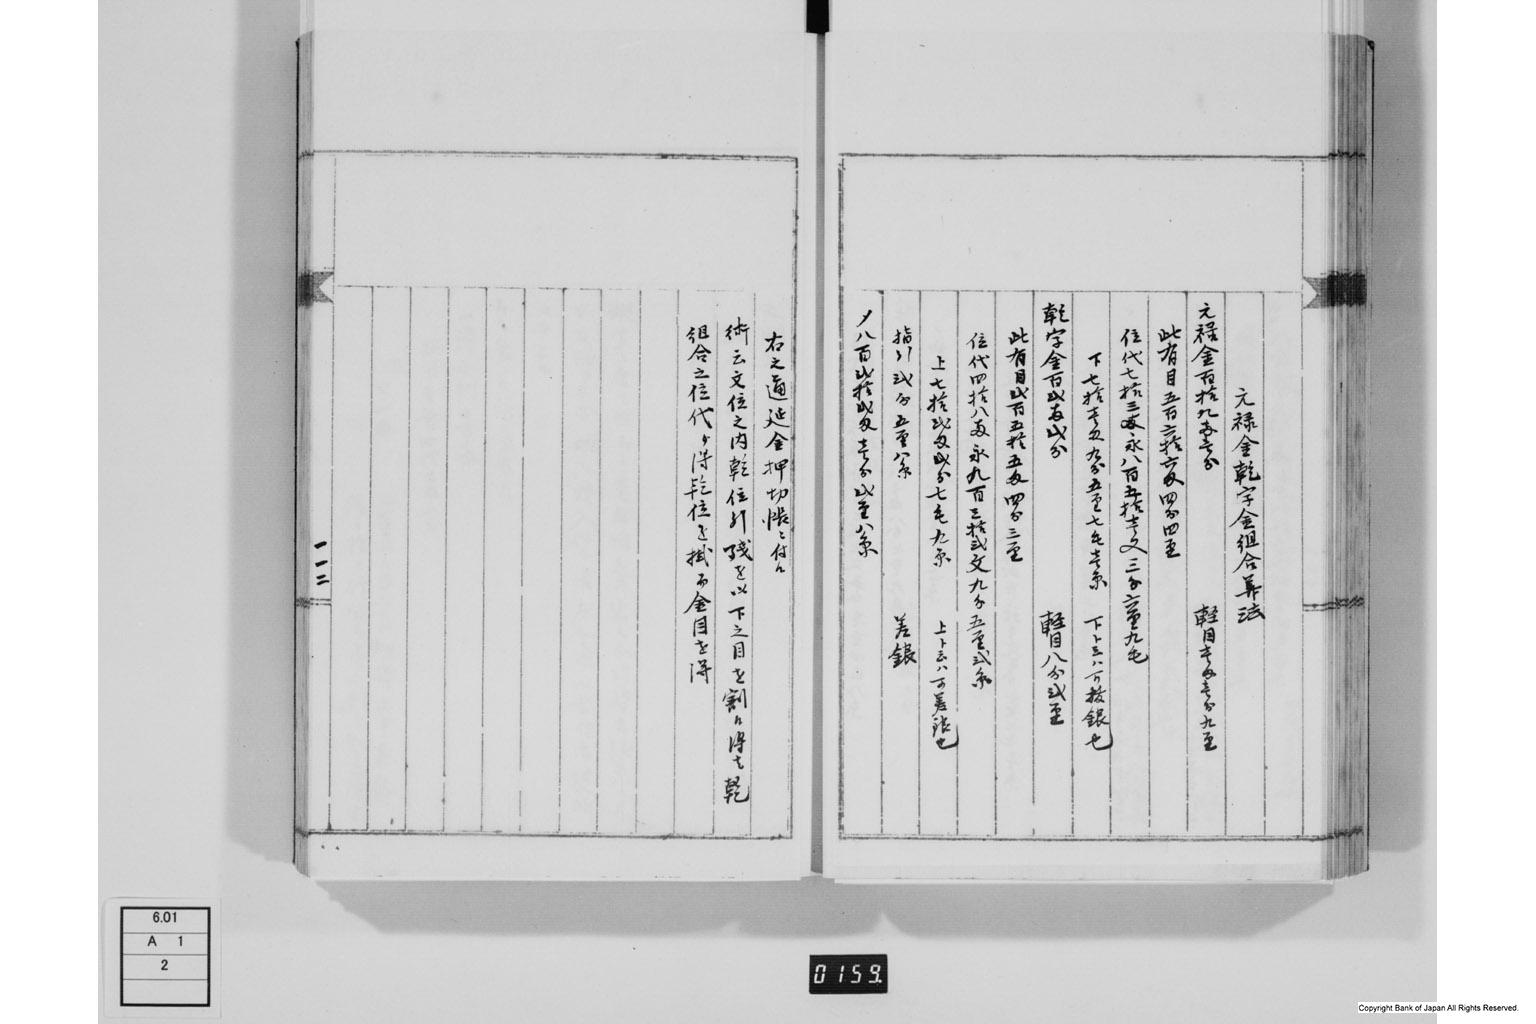 元禄金乾字金組合算法
元禄金百拾九両壱分　軽目壱匁壱分九厘
此有目五百六拾六匁四分四厘
位代七拾三両永八百五拾壱文三分六厘九毛
下七拾壱匁九分五厘七毛壱糸　下ト云ハ可抜銀也
乾字金百弐両弐分　軽目八分弐厘
此有目弐百五拾五匁四分三厘
位代四拾八両永九百三拾弐文九分五厘弐糸
上七拾弐匁弐分七毛九糸　上ト云ハ可差銀也
指引弐分五厘八糸　差銀
〆八百弐拾弐匁壱分弐厘八糸
右之通延金押切帳ニ付ル
術云文位之内乾位引残を以下之目を割ル得を乾
組合之位代ヲ得乾位を掛而金目を得
一一二
6.01
A 1
2
0159.
Copyright Bank of Japan All Rights Reserved.